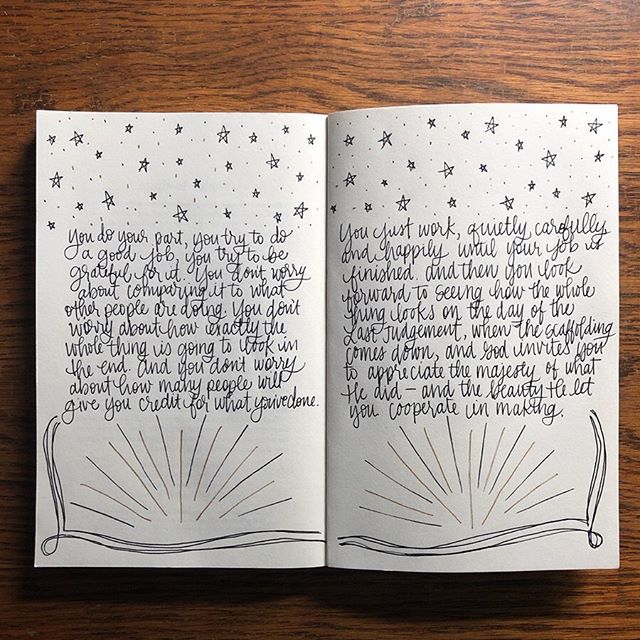 you do your part, you try to do
a good job, you try to be
grateful for it. You don't worry
about comparing it to what
other people are doing. You don't
worry about how exactly the
whole thing is going to look in
the end. And you don't worry
about how many people will
give you credit for what you've done.
You just work, quietly, carefully
and happily until your job is
finished. And then you look
forward to seeing how the whole
thing looks on the day of the
Last Judgement, when the scaffolding
comes down, and God invites you
to appreciate the majesty of what
He did — and the beauty He let
you cooperate in making.